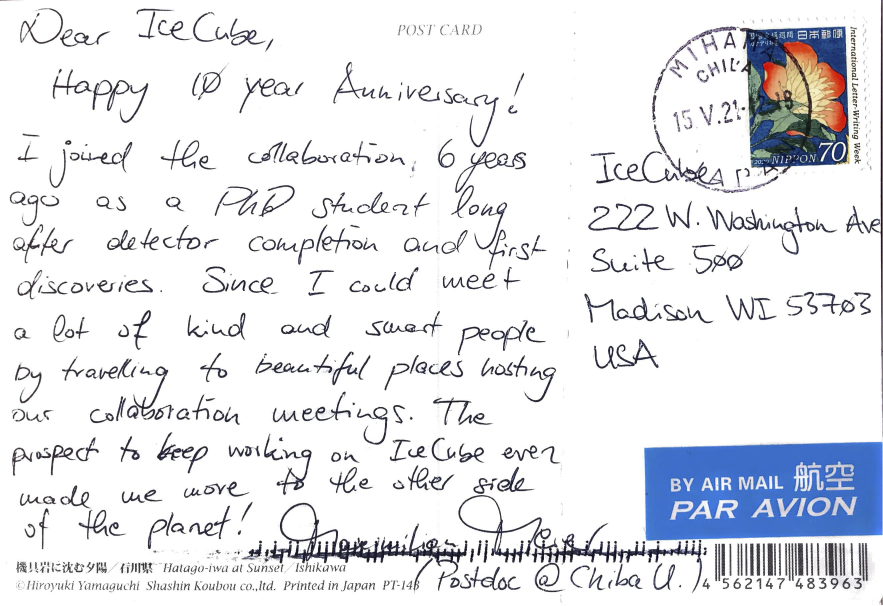 POST CARD
Dear IceCube,
Happy 10 year Anniversary!
I joined the collaboration 6 years
ago as a PhD student long
after detector completion and first
discoveries. Since I could meet
a lot of kind and smart people
by travelling to beautiful places hosting
our collaboration meetings. The
prospect to keep working on IceCube even
made me move to the other side
of the planet!
(Postdoc @ Chiba U.)
機具岩に沈む夕陽/石川県 Hatago-iwa at Sunset/Ishikawa
©Hiroyuki Yamaguchi Shashin Koubou co.,ltd. Printed in Japan PT-143
CHIBA
15.V.21
日本郵便
International Letter-Writing Week
NIPPON 70
IceCube
222 W. Washington Ave
Suite 500
Madison WI 53703
USA
BY AIR MAIL 航空
PAR AVION
4 562147 483963